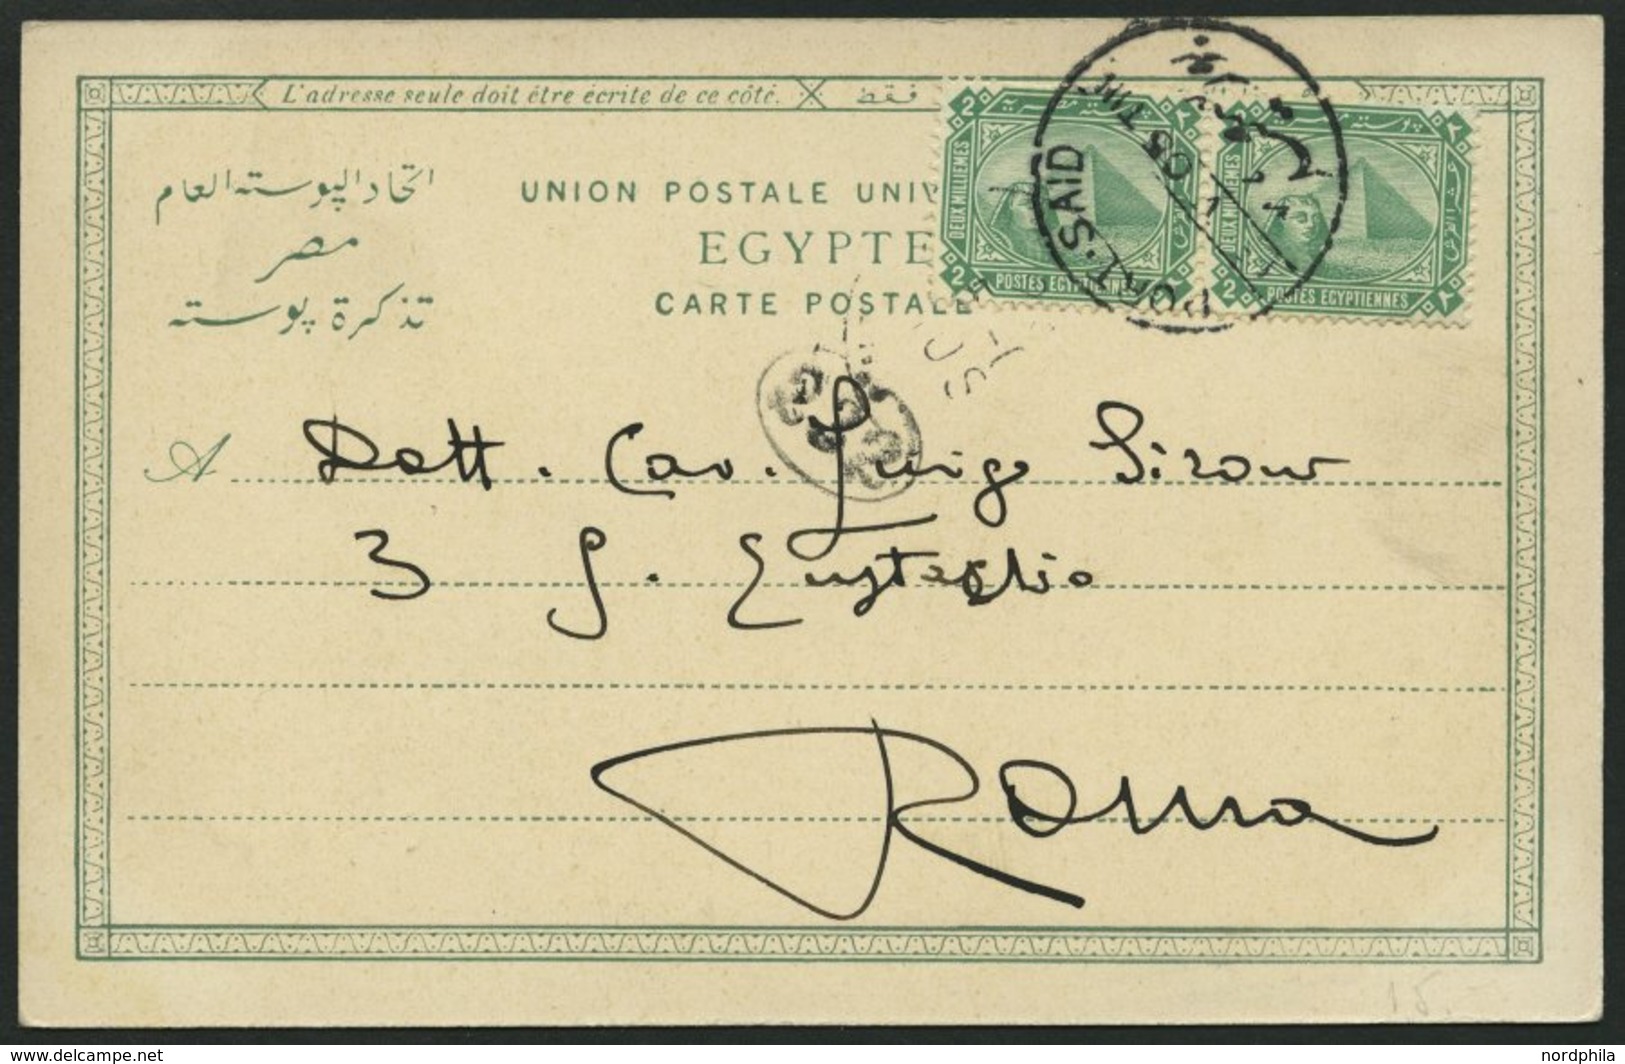 L'adresse seule doit être écrite de ce côté. فقط
اتحاد البوسته العام
UNION POSTALE UNIV
مصر
EGYPTE
تذكرة بوسته
CARTE POSTALE
2 DEUX MILLIEMES 2 POSTES EGYPTIENNES
2 DEUX MILLIEMES 2 POSTES EGYPTIENNES
PORT-SAID
A Dott. Cav. Luigi
3 S. Eustachio
Roma
15.-
nordphila